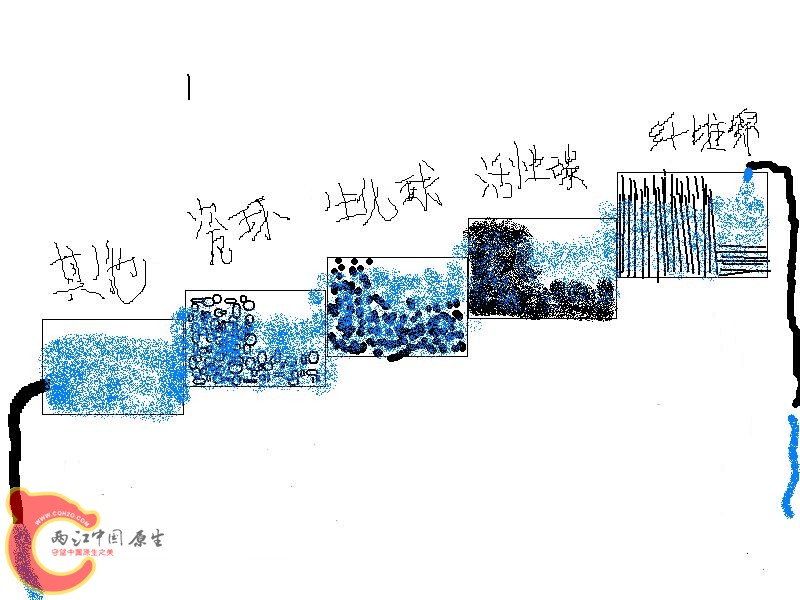 纤维棉
活性碳
生化球
瓷环
其他
WWW.CQH2O.COM
两江中国原生
守望中国原生之美